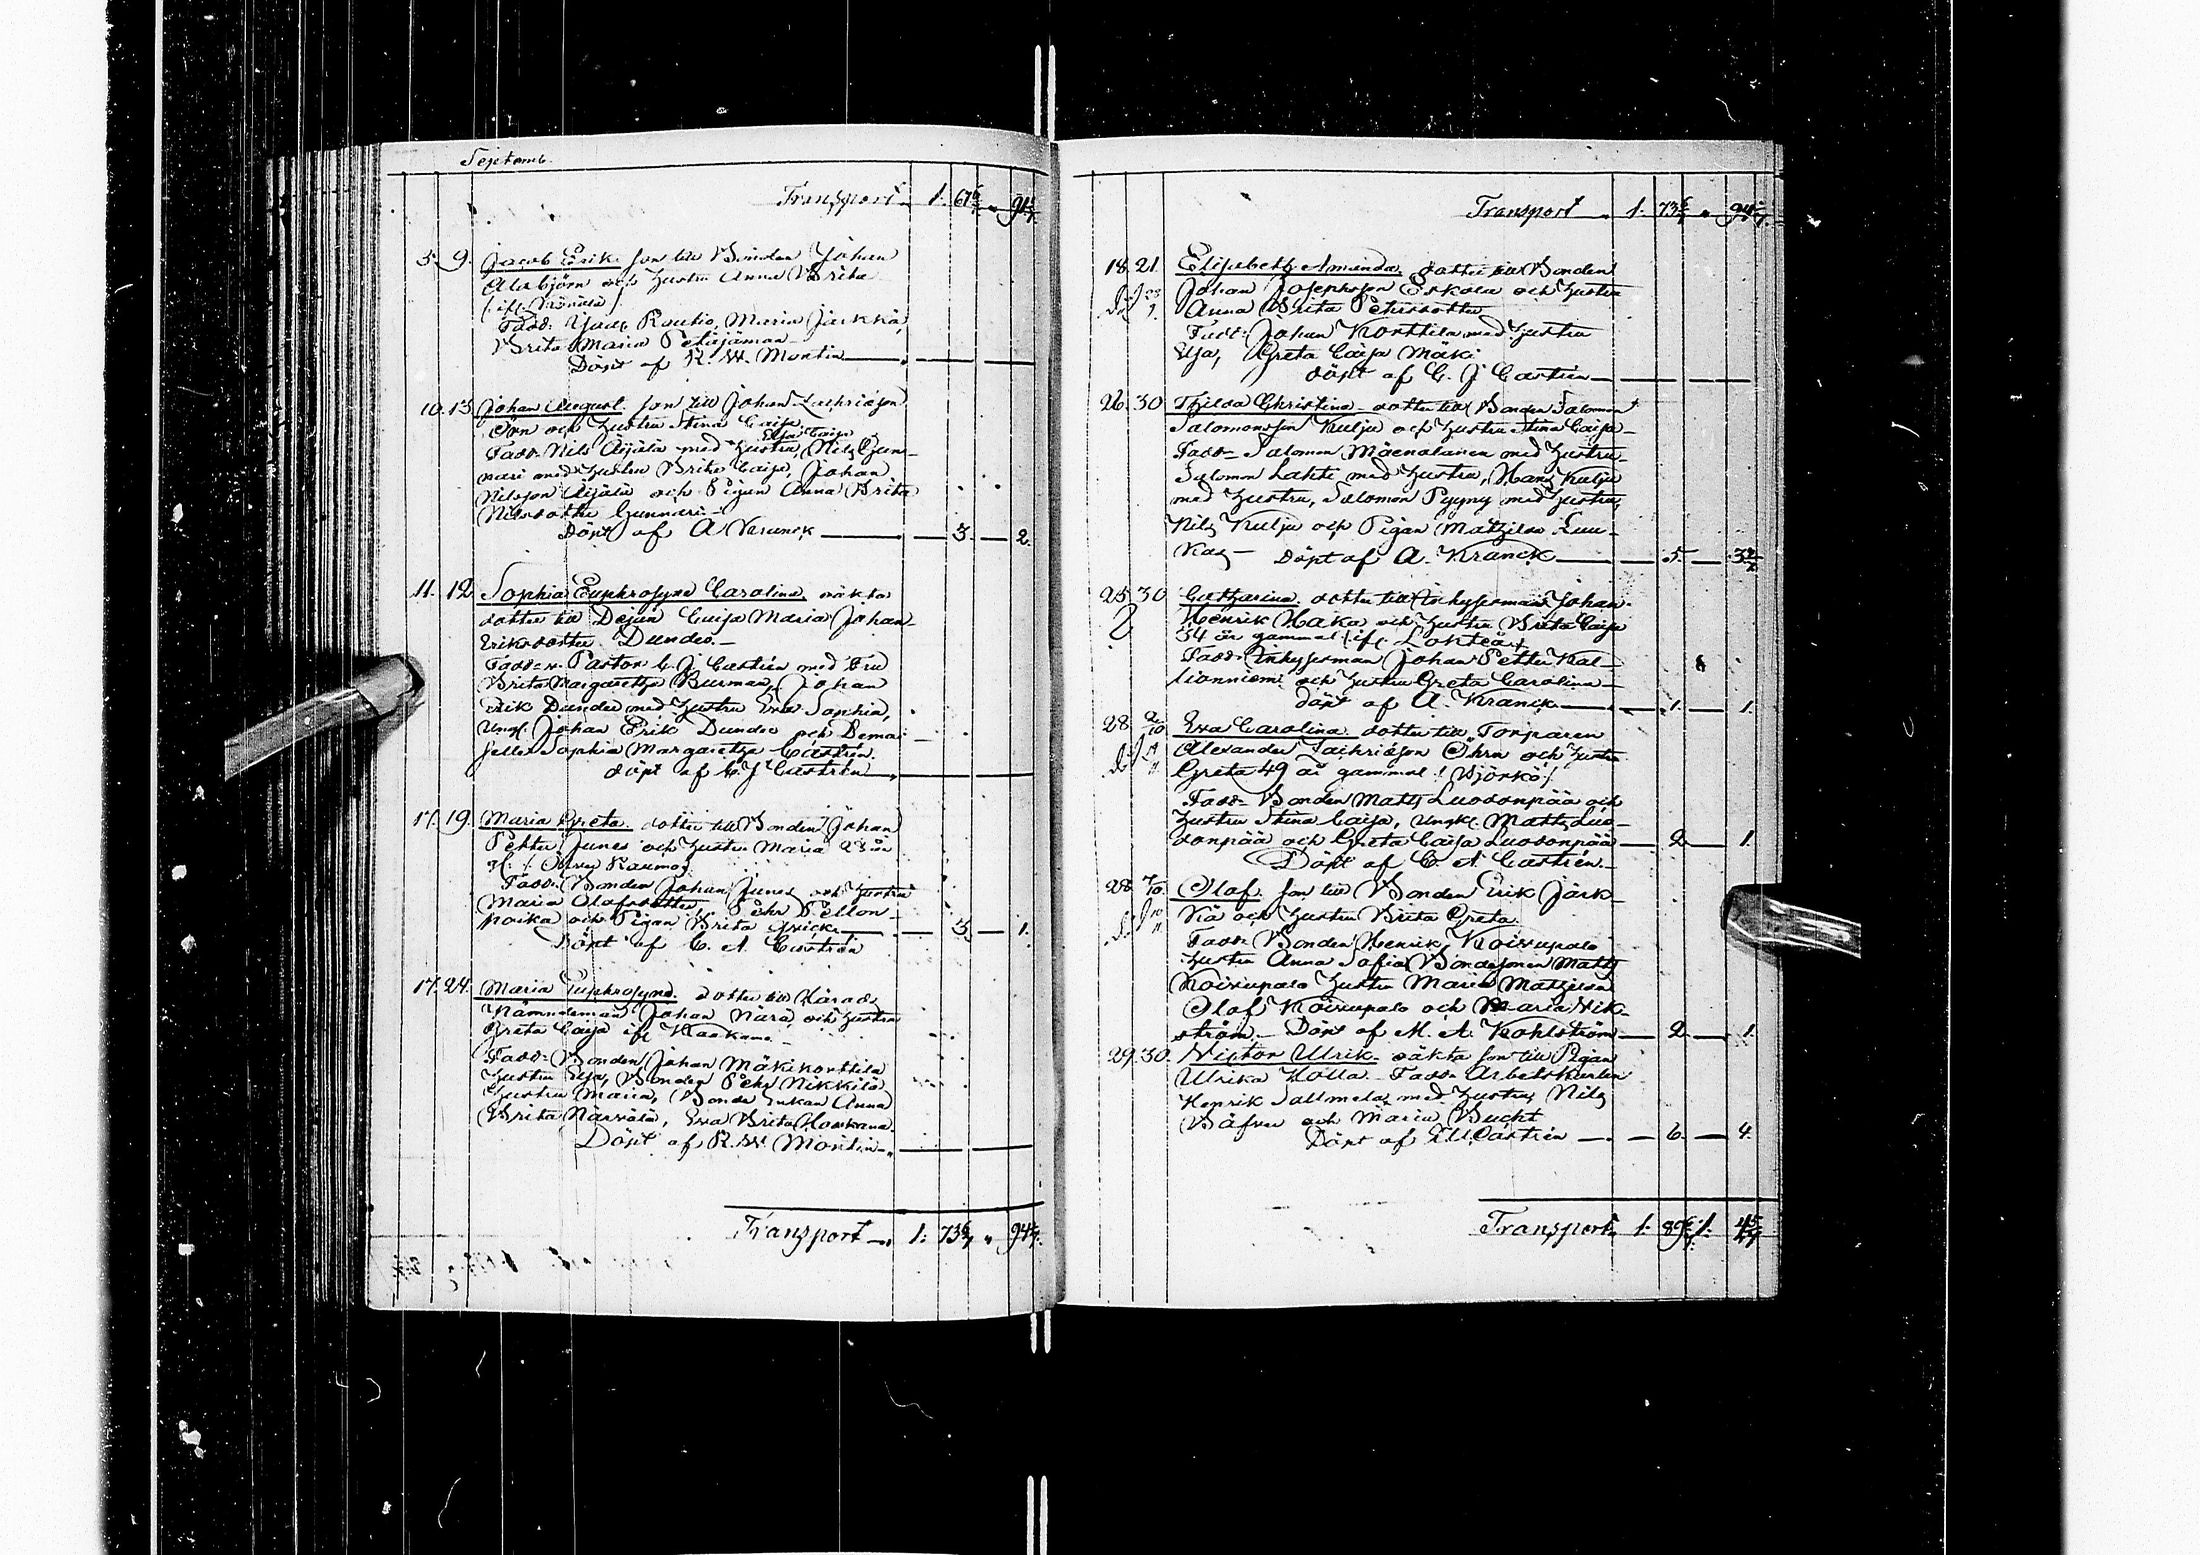 Septemb.
Transport 1. 67 6/7 " 91 5/7
5. 9. Jacob Erik son till Bonden Johan
Alabjörn och hustru Anna Brita
Fadd: Jaac Rautio, Maria Jarkkä,
Brita Maria Petäjämaa
Döpt af R. W. Montin
10. 13 Johan August son till Johan Zachrisson
Örn och hustru Stina Caisa
Elsa Caisa
Fadd. Nils Äijälä med hustru, Nils Gun-
nari med hustru Brita Caisa, Johan
Nilsson Äijälä och Pigan Anna Brita
Nilsdotter Gunnari
Döpt af A Kranck 3. 2.
11. 12 Sophia Euphrosyne Carolina, oäkta
dotter till Dejan Caisa Maria Johan
Eriksdotter Dunder
Fadd: v. Pastor C. J. Castrén med Fru
Brita Margaretha Burman, Johan
Erik Dunder med hustru Eva Sophia,
Ungl. Johan Erik Dunder och Dema-
selle Sophia Margaretha Castrén.
döpt af C. J Castrén
17. 19. Maria Greta. dotter till Bonden Johan
Petter Junes och hustru Maria 28 år
gl. /. Öfver Raumo /
Fadd. Bonden Johan Junes och hustru
Maria Olofsdotter, Pehr Pellon-
poika och Pigan Brita Frick 3. 1.
Döpt af C. A. Castrén
17. 24. Maria Euphrosyne. dotter till Härads
Nämndeman Johan Nära och hustru
Greta Caisa if.
Fadd. Bonden Johan Mäkikorttila
hustru Elsa, Bonden Pehr Nikkilä
hustru Maria, Bonde Enkan Anna
Brita Närvälä, Eva Brita
Döpt af R. W. Montin
Transport 1. 73 6/7 " 94 5/7
Transport 1. 73 6/7 " 94 5/7
18. 21. Elisabeth Amanda, dotter till Bonden
Johan Josephsson Eskola och hustru
Anna Brita Pehrsdotter
Fadd: Johan Korttila med hustru
Elsa, Greta Caisa Mäki
döpt af C. J Castrén
26. 30 Thilda Christina dotter till Bonden Salomon
Salomonsson Kulju och hustru Stina Caisa
Fadd. Salomon Mäenalanen med hustru
Salomon Lahti med hustru, Hans Kulju
med hustru, Salomon Pyyny med hustru,
Nils Kulju och Pigan Mathilda Luu-
kas Döpt af A. Kranck 5. 3
25. 30 Catharina dotter till Inhysesman Johan
Henrik Haka och hustru Brita Caisa
34 år gammal / if. Lohteå /
Fadd. Inhysesman Johan Petter Kal-
lionniemi och hustru Greta Carolina
döpt af A. Kranck 1. 1.
28. 2/10 Eva Carolina dotter till Torparen
Alexander Zachrisson Öhrn och hustru
Greta 49 år gammal / Björkö /
Fadd. Bonden Matts Luodonpää och
hustru Stina Caisa, Ungk. Matts Luo-
donpää och Greta Caisa Luodonpää 2. 1.
Döpt af C. A. Castrén
28 7/10. Olof. son till Bonden Erik Jark-
kä och hustru Brita Greta
Fadd. Bonden Henrik Koivupalo
hustru Anna Sofia Bondesonen Matts
Koivupalo hustru Maria Mathilda
Olof Koivupalo och Maria Wik-
ström. Döpt af M. A. Kohlström 2. 1.
29. 30. Victor Ulrik. oäkta son till Pigan
Ulrika Kolla. Fadd. Arbetskarlen
Henrik Sallmela med hustru, Nils
Bäfver och Maria Bucht
Döpt af Castrén 6. 4.
Transport 1.